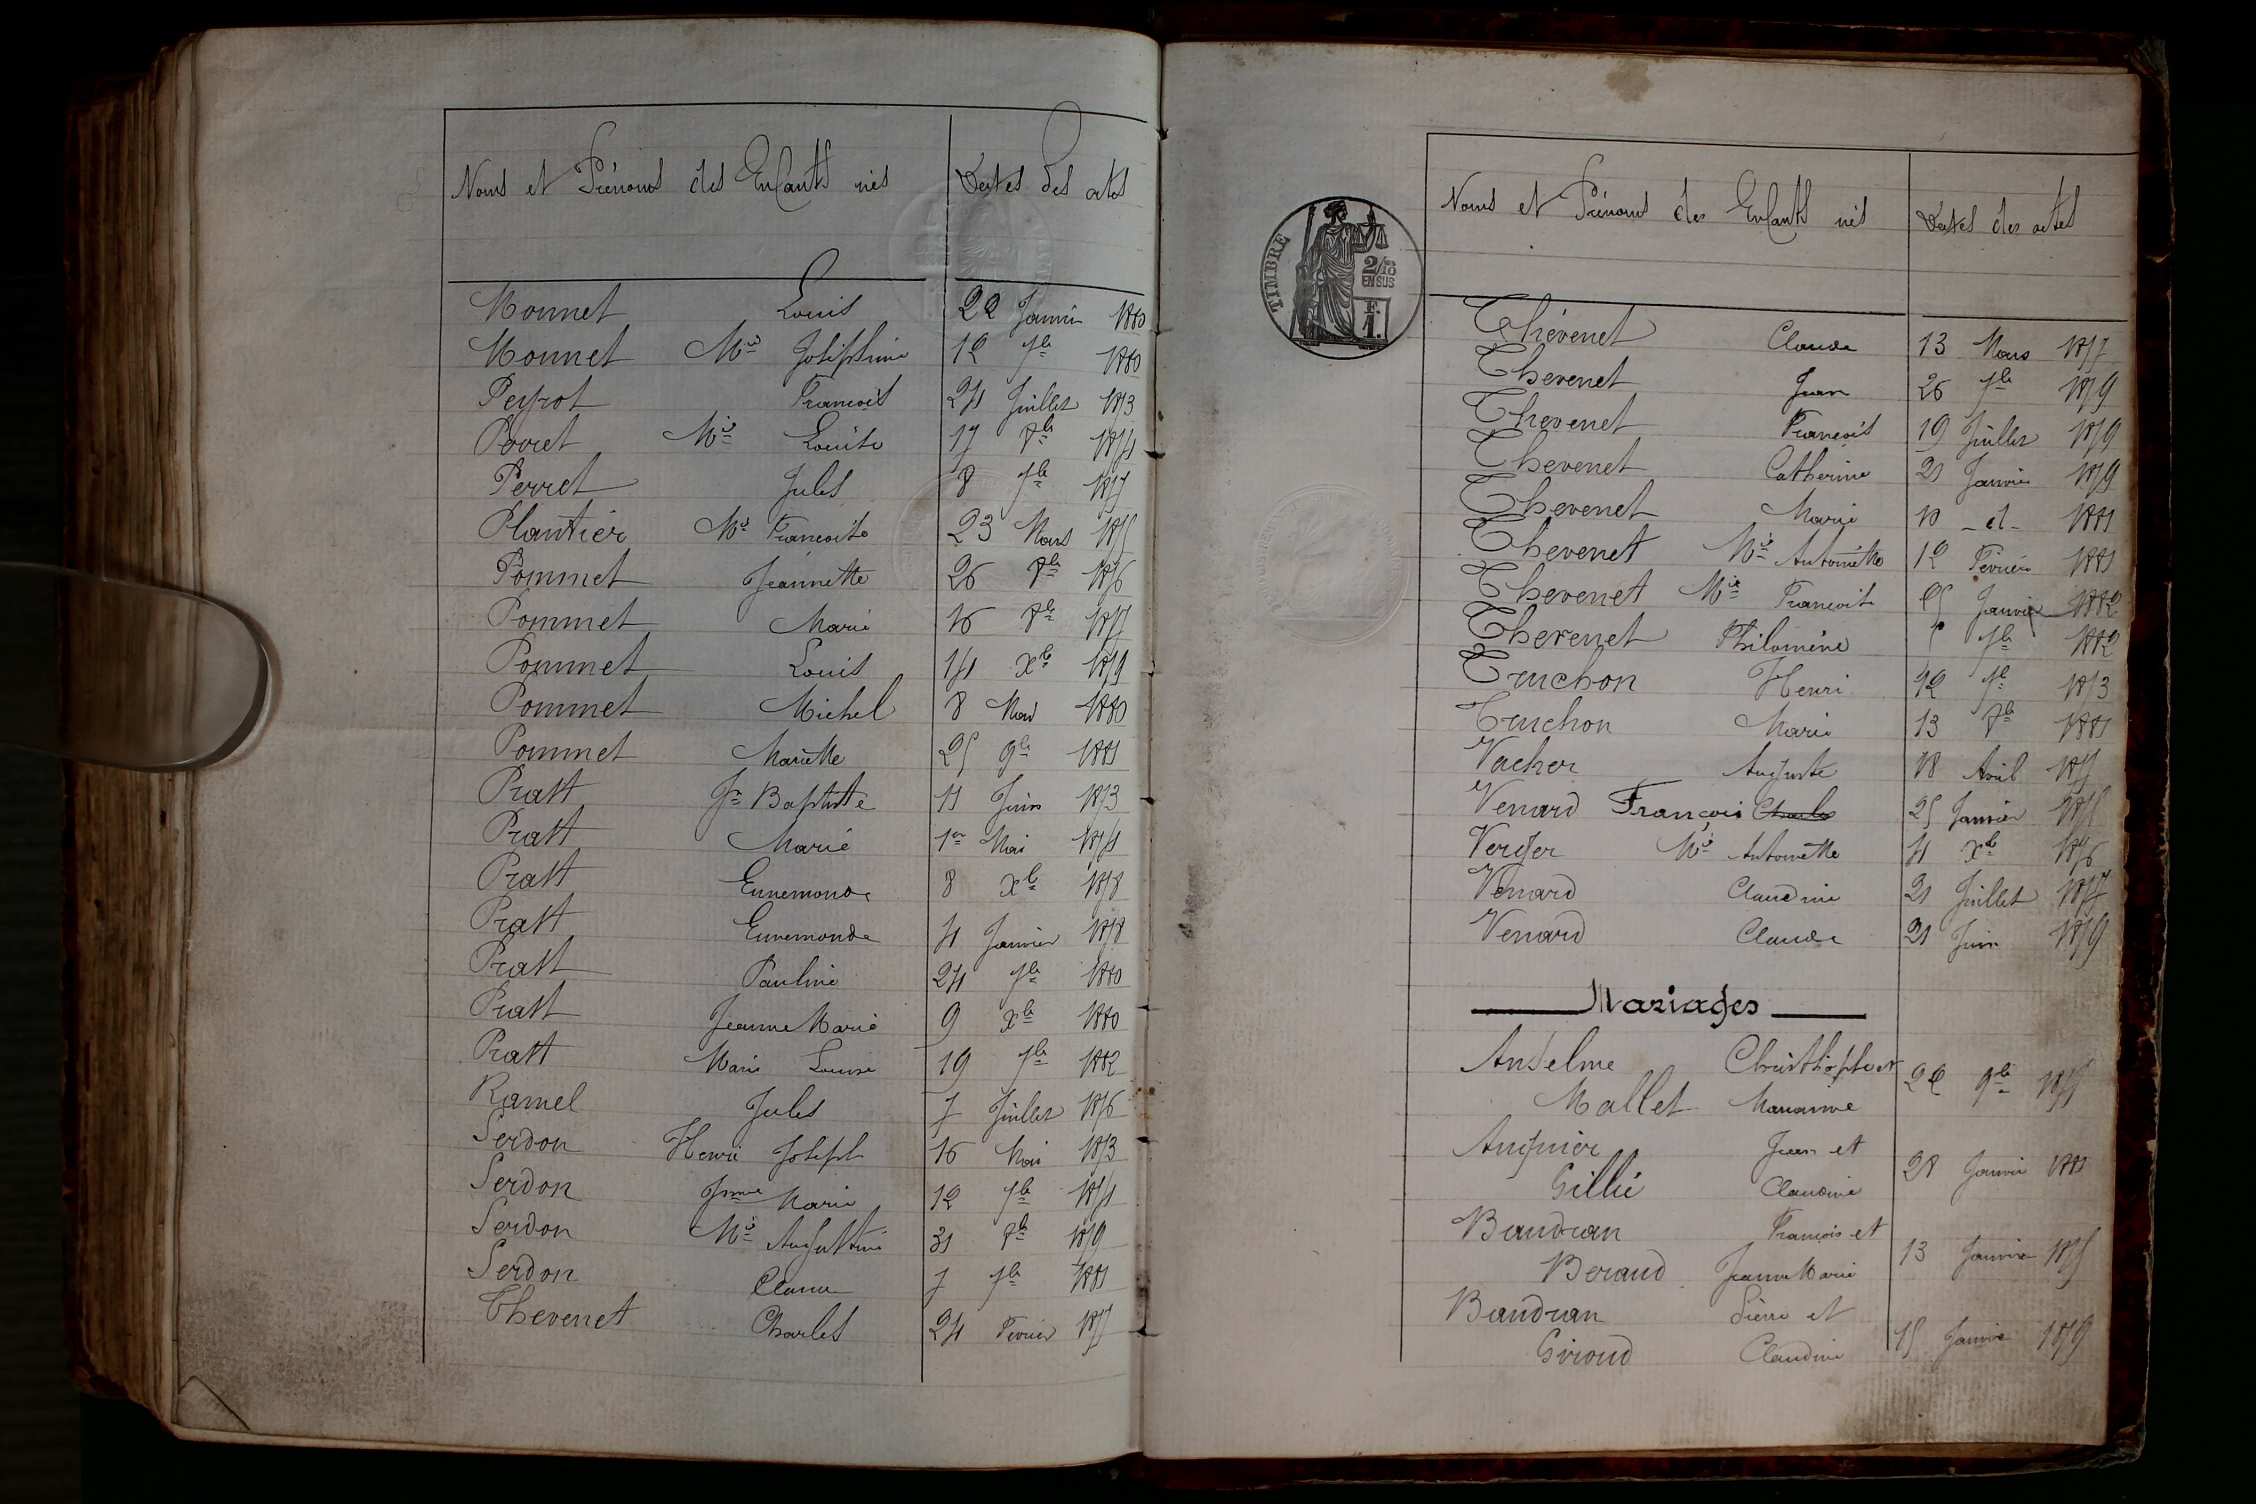 Noms et Prénoms des Enfants nés Dates des actes
Monnet Louis 22 Janvier 1880
Monnet Mie Joséphine 12 7bre 1880
Peyrot François 24 Juillet 1873
Perret Mie Louise 17 8bre 1874
Perret Jules 8 7bre 1877
Plantier Mie Françoise 23 Mars 1875
Pommet Jeannette 26 8bre 1876
Pommet Marie 16 8bre 1877
Pommet Louis 14 Xbre 1879
Pommet Michel 8 1880
Pommet Mariette 25 9bre 1881
Pratt Jn Baptiste 11 Juin 1873
Pratt Marie 1er Mai 1874
Pratt Ennemonde 8 Xbre 1878
Pratt Ennemonde 4 Janvier 1878
Pratt Pauline 24 7bre 1880
Pratt Jeanne Marie 9 Xbre 1880
Pratt Marie Louise 19 7bre 1882
Ramel Jules 7 Juillet 1876
Serdon Henri Joseph 16 Mai 1873
Serdon Jnne Marie 12 7bre 1874
Serdon Mie Augustine 31 8bre 1879
Serdon 7 7bre 1881
Thevenet Charles 24 Fevrier 1877
Noms et Prénoms des Enfants nés Dates des actes
TIMBRE
2/10 EN SUS
F. 1.
Thévenet Claude 13 Mars 1877
Thevenet Jean 26 7bre 1879
Thevenet François 19 Juillet 1879
Thevenet Catherine 21 Janvier 1879
Thevenet Marie 10 - d - 1881
Thevenet Mie Antoinette 12 Février 1881
Thevenet Mie François Janvier 1882
Thevenet Philomène 5 7bre 1882
Truchon Henri 12 7bre 1873
Truchon Marie 13 8bre 1881
Vacher Auguste 18 Avril
Venard François Charles 25 Janvier 1875
Verger Mie Antoinette 4 Xbre 1876
Venard Claudine 21 Juillet 1877
Venard Claude 21 Juin 1879
Mariages
Anselme Christophe et
Mallet Marianne 22 9bre 1875
Auguier Jean et
Gillié Claudine 28 Janvier 1881
Baudran François et
Beraud Jeanne Marie 13 Janvier 1875
Baudran Pierre et
Giroud Claudine 15 Janvier 1879